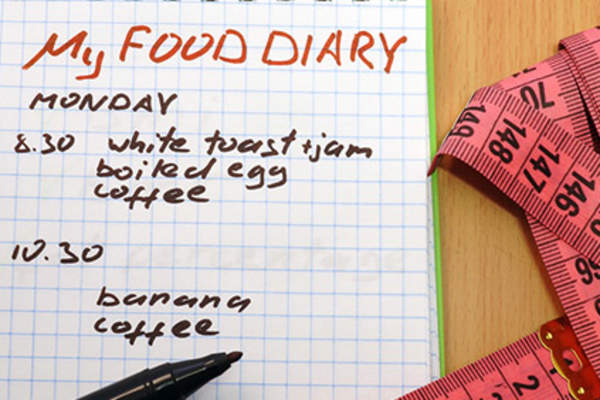 My FOOD DIARY
MONDAY
8.30 white toast + jam
boiled egg
coffee
10.30
banana
coffee
70
149
148
147
146
1
2